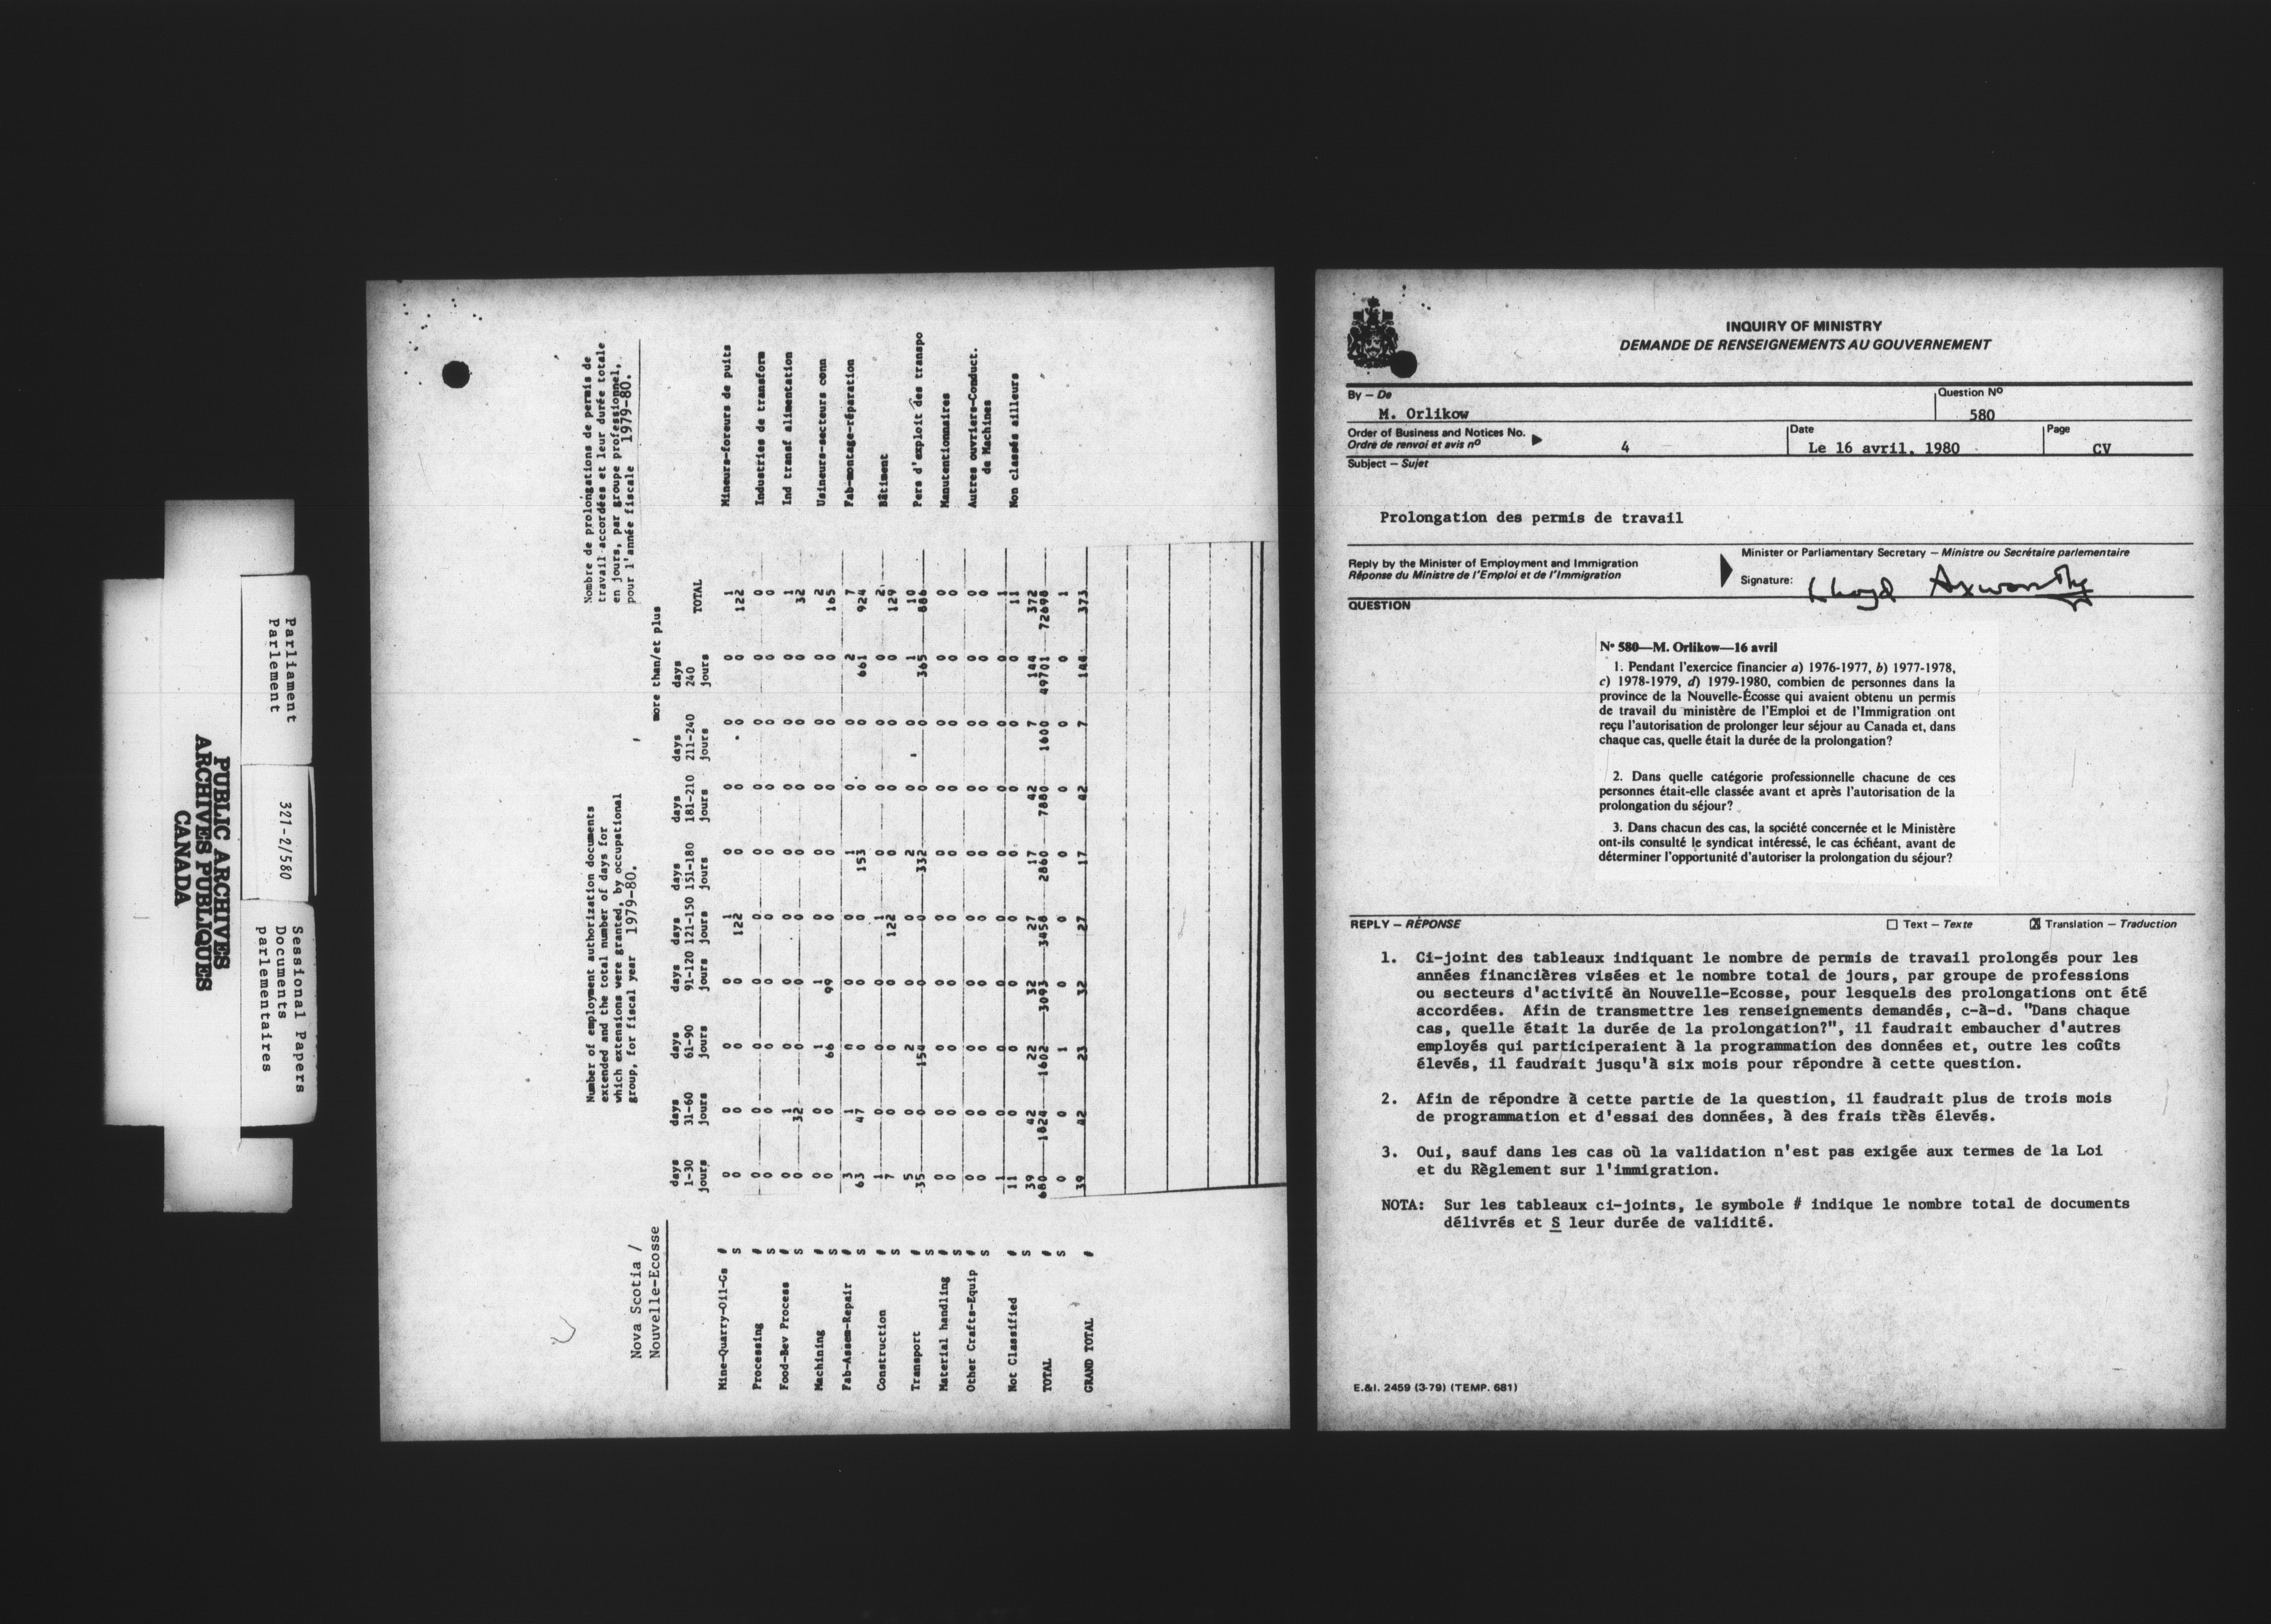 Parliament
Parlement
321-2/580
Sessional Papers
Documents
parlementaires
PUBLIC ARCHIVES
ARCHIVES PUBLIQUES
CANADA
Nova Scotia /
Nouvelle-Ecosse
Number of employment authorization documents
extended and the total number of days for
which extensions were granted, by occupational
group, for fiscal year 1979-80.
Nombre de prolongations de permis de
travail accordées et leur durée totale
en jours, par groupe professionnel,
pour l'année fiscale 1979-80.
more than/et plus
days days days days days days days days days
1-30 31-60 61-90 91-120 121-150 151-180 181-210 211-240 240 TOTAL
jours jours jours jours jours jours jours jours jours
Mine-Quarry-Oil-Gs # 0 0 0 0 1 0 0 0 0 1 Mineurs-foreurs de puits
S 0 0 0 0 122 0 0 0 0 122
Processing # 0 0 0 0 0 0 0 0 0 0 Industries de transform
S 0 0 0 0 0 0 0 0 0 0
Food-Bev Process # 0 1 0 0 0 0 0 0 0 1 Ind transf alimentation
S 0 32 0 0 0 0 0 0 0 32
Machining # 0 0 1 1 0 0 0 0 0 2 Usineurs-secteurs conn
S 0 0 66 99 0 0 0 0 0 165
Fab-Assem-Repair # 3 1 0 0 0 1 0 0 2 7 Fab-montage-réparation
S 63 47 0 0 0 153 0 0 661 924
Construction # 1 0 0 0 1 0 0 0 0 2 Bâtiment
S 7 0 0 0 122 0 0 0 0 129
Transport # 5 0 2 0 0 2 0 0 1 10 Pers d'exploit des transpo
S 35 0 154 0 0 332 0 0 365 886
Material handling # 0 0 0 0 0 0 0 0 0 0 Manutentionnaires
S 0 0 0 0 0 0 0 0 0 0
Other Crafts-Equip # 0 0 0 0 0 0 0 0 0 0 Autres ouvriers-Conduct.
S 0 0 0 0 0 0 0 0 0 0 de Machines
Not Classified # 1 0 0 0 0 0 0 0 0 1 Non classés ailleurs
S 11 0 0 0 0 0 0 0 0 11
TOTAL # 39 42 22 32 27 17 42 7 144 372
S 680 1824 1602 3093 3458 2860 7880 1600 49701 72698
0 0 1 0 0 0 0 0 0 1
GRAND TOTAL # 39 42 23 32 27 17 42 7 144 373
INQUIRY OF MINISTRY
DEMANDE DE RENSEIGNEMENTS AU GOUVERNEMENT
By – De
M. Orlikow
Question Nº
580
Order of Business and Notices No.
Ordre de renvoi et avis nº
4
Date
Le 16 avril, 1980
Page
CV
Subject – Sujet
Prolongation des permis de travail
Reply by the Minister of Employment and Immigration
Réponse du Ministre de l'Emploi et de l'Immigration
Minister or Parliamentary Secretary – Ministre ou Secrétaire parlementaire
Signature: Lloyd Axworthy
QUESTION
Nº 580—M. Orlikow—16 avril
1. Pendant l'exercice financier a) 1976-1977, b) 1977-1978,
c) 1978-1979, d) 1979-1980, combien de personnes dans la
province de la Nouvelle-Écosse qui avaient obtenu un permis
de travail du ministère de l'Emploi et de l'Immigration ont
reçu l'autorisation de prolonger leur séjour au Canada et, dans
chaque cas, quelle était la durée de la prolongation?
2. Dans quelle catégorie professionnelle chacune de ces
personnes était-elle classée avant et après l'autorisation de la
prolongation du séjour?
3. Dans chacun des cas, la société concernée et le Ministère
ont-ils consulté le syndicat intéressé, le cas échéant, avant de
déterminer l'opportunité d'autoriser la prolongation du séjour?
REPLY – RÉPONSE
Text – Texte
X Translation – Traduction
1. Ci-joint des tableaux indiquant le nombre de permis de travail prolongés pour les
années financières visées et le nombre total de jours, par groupe de professions
ou secteurs d'activité èn Nouvelle-Ecosse, pour lesquels des prolongations ont été
accordées. Afin de transmettre les renseignements demandés, c-à-d. "Dans chaque
cas, quelle était la durée de la prolongation?", il faudrait embaucher d'autres
employés qui participeraient à la programmation des données et, outre les coûts
élevés, il faudrait jusqu'à six mois pour répondre à cette question.
2. Afin de répondre à cette partie de la question, il faudrait plus de trois mois
de programmation et d'essai des données, à des frais très élevés.
3. Oui, sauf dans les cas où la validation n'est pas exigée aux termes de la Loi
et du Règlement sur l'immigration.
NOTA: Sur les tableaux ci-joints, le symbole # indique le nombre total de documents
délivrés et S leur durée de validité.
E.&I. 2459 (3-79) (TEMP. 681)